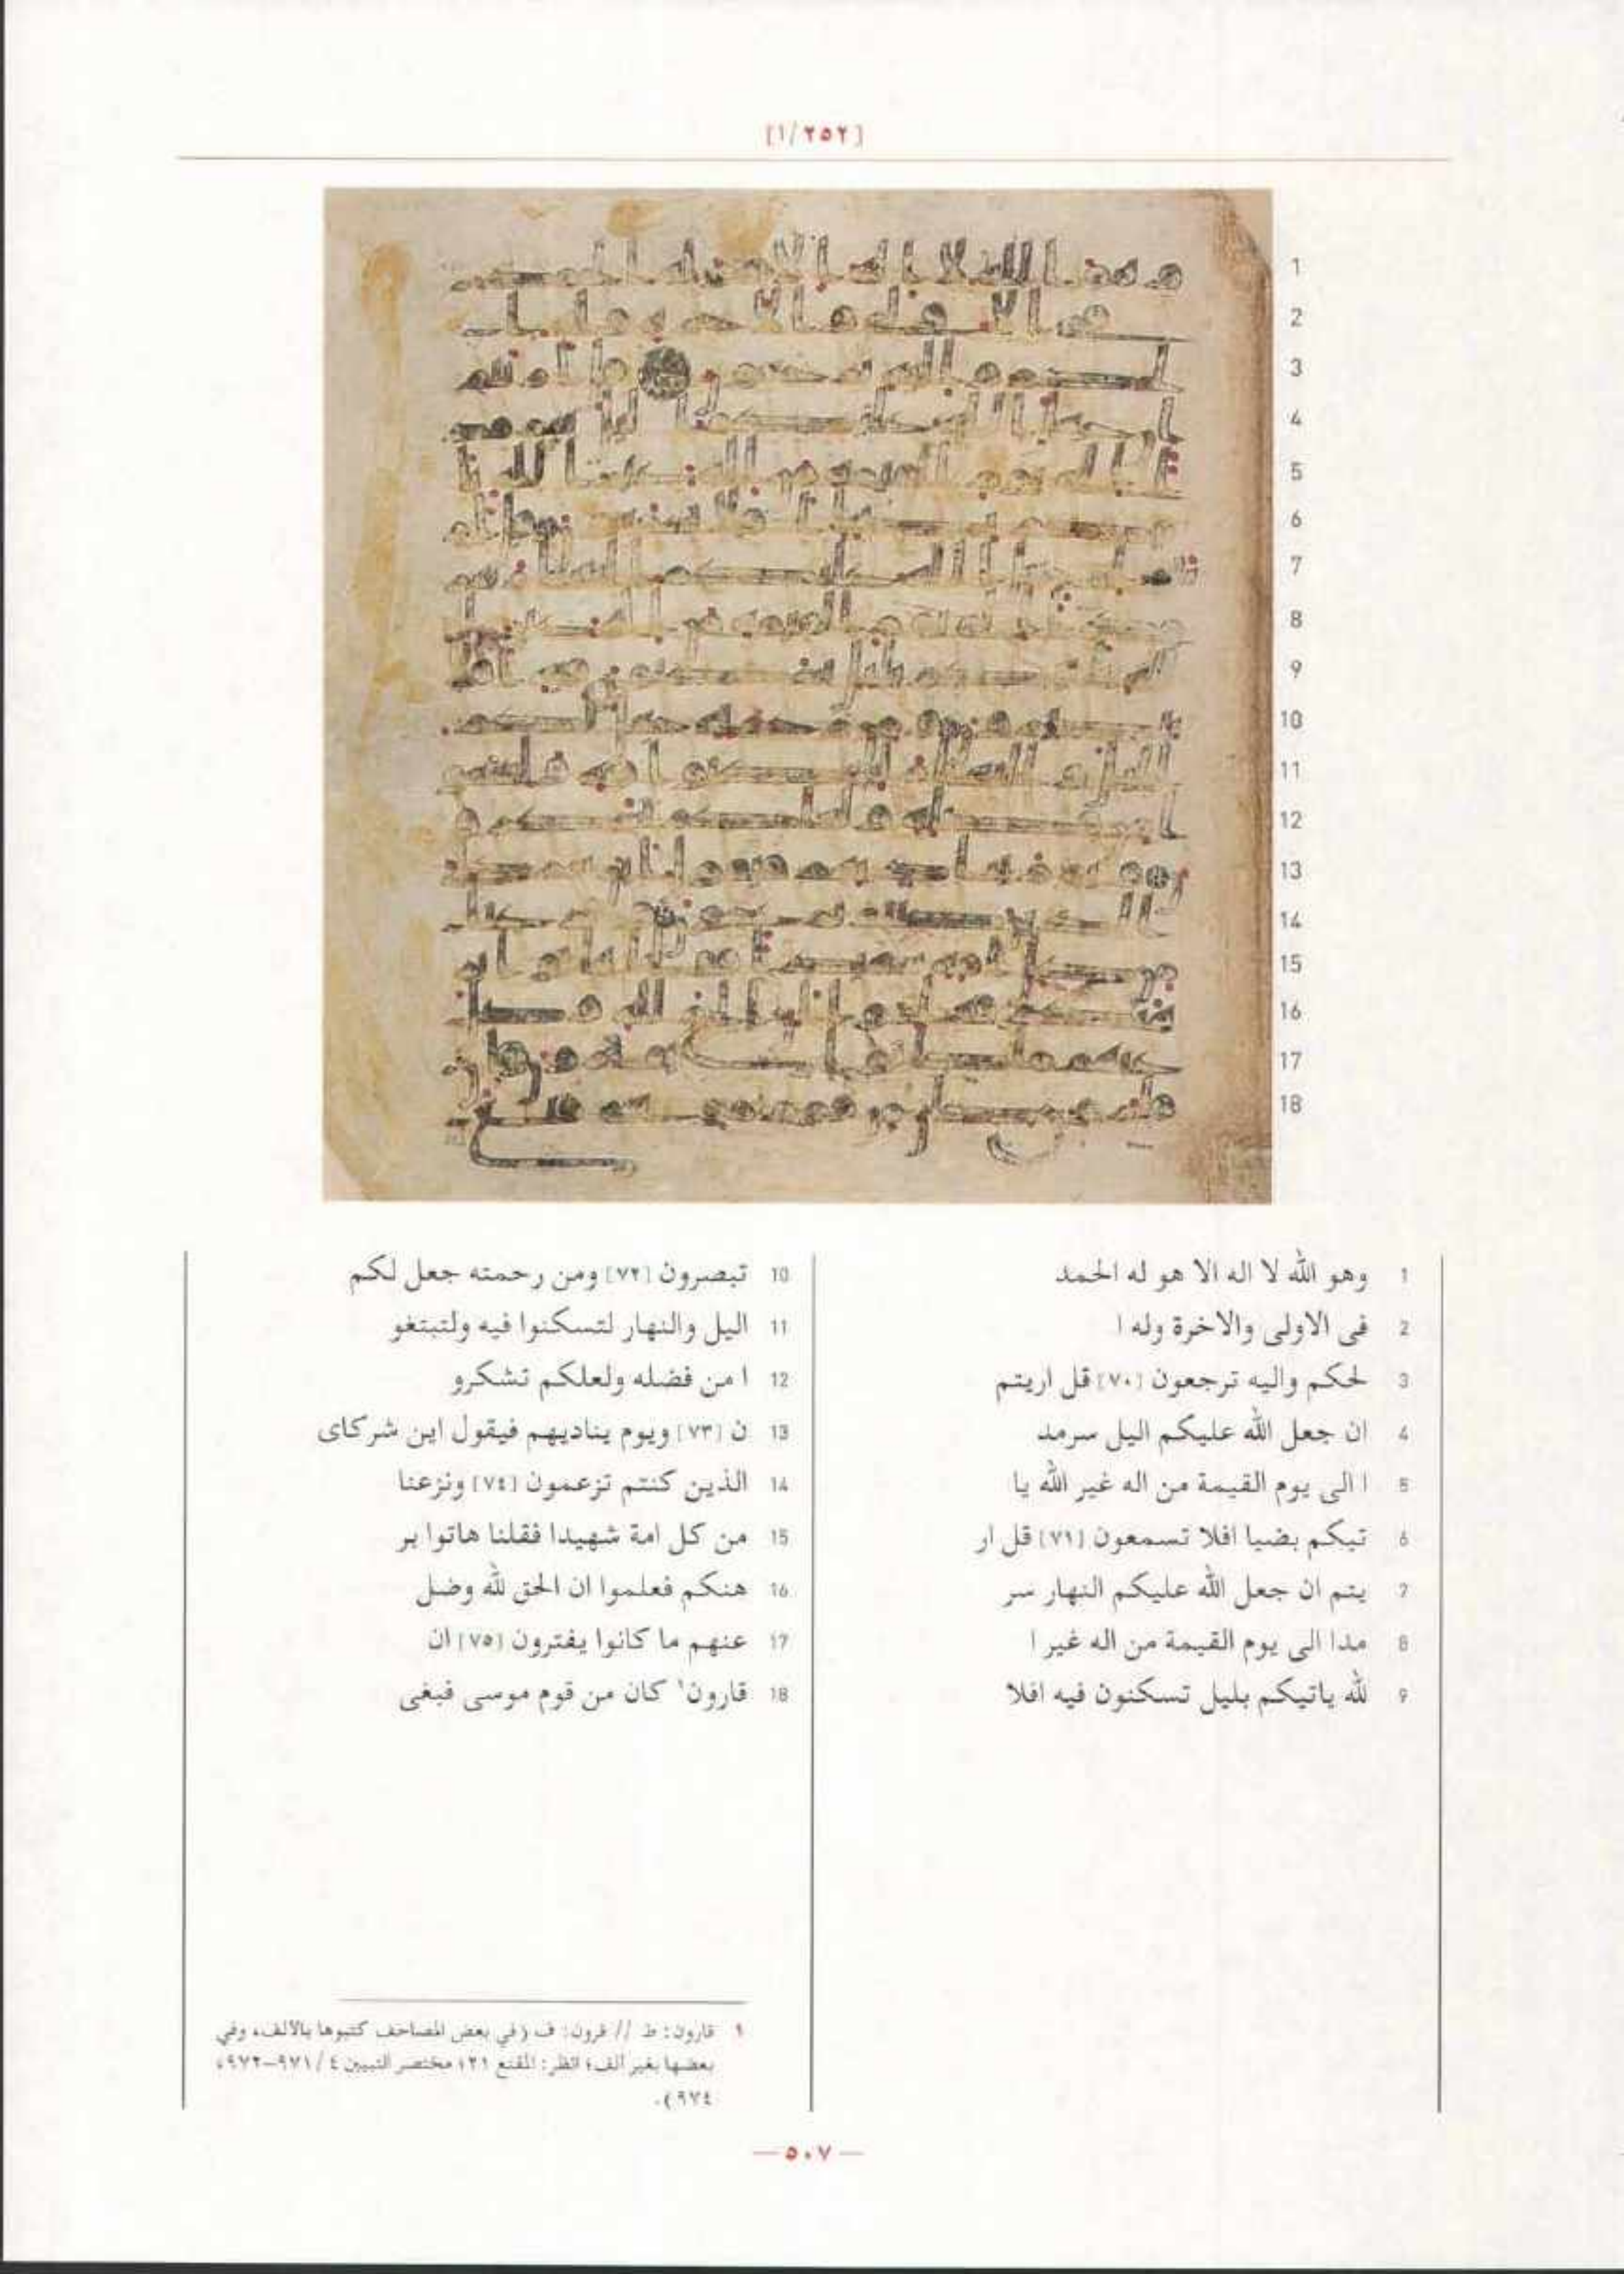 [١/٢٥٢]
1 وهو الله لا اله الا هو له الحمد
2 فى الاولى والاخرة وله ا
3 لحكم واليه ترجعون [٧٠] قل اريتم
4 ان جعل الله عليكم اليل سرمد
5 ا الى يوم القيمة من اله غير الله يا
6 تيكم بضيا افلا تسمعون [٧١] قل ار
7 يتم ان جعل الله عليكم النهار سر
8 مدا الى يوم القيمة من اله غير ا
9 لله ياتيكم بليل تسكنون فيه افلا
10 تبصرون [٧٢] ومن رحمته جعل لكم
11 اليل والنهار لتسكنوا فيه ولتبتغو
12 ا من فضله ولعلكم تشكرو
13 ن [٧٣] ويوم يناديهم فيقول اين شركاى
14 الذين كنتم تزعمون [٧٤] ونزعنا
15 من كل امة شهيدا فقلنا هاتوا بر
16 هنكم فعلموا ان الحق لله وضل
17 عنهم ما كانوا يفترون [٧٥] ان
18 قارون١ كان من قوم موسى فبغى
١ قارون: ط // قرون: ف (في بعض المصاحف كتبوها بالألف، وفي
بعضها بغير ألف؛ انظر: المقنع ٢١؛ مختصر التبيين ٤/٩٧١-٩٧٢،
٩٧٤).
— ٥٠٧ —